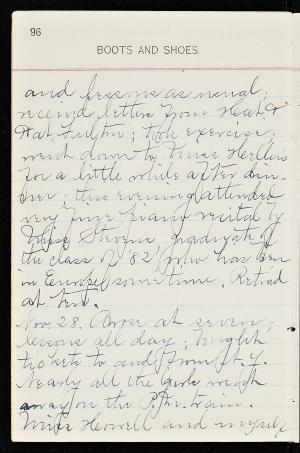 96
BOOTS AND SHOES.
and lessons as usual;
received letters from
Fulton; took exercise;
went down to Miss
for a little while after din-
ner; this evening attended
very fine piano recital by
Miss Stevens graduate of
the class of '82, who has been
in Europe sometime. Retired
at ten.
Nov. 28. Arose at seven;
lessons all day; bought
tickets to and from N.Y.
Nearly all the girls went
away on the P.M. train.
Miss Howell and myself